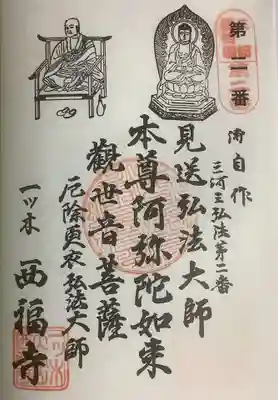 第二番
御自作
三河三弘法第二番
見送弘法大師
本尊阿弥陀如来
觀世音菩薩
厄除更衣弘法大師
一ツ木 西福寺